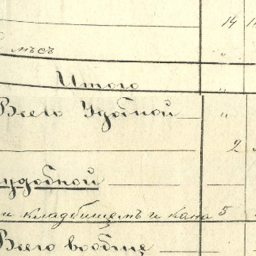 14
лѣсъ "
Итого "
Всего Удобной "
2
еудобной
и кладбищемъ и кана 5
Всего вообще